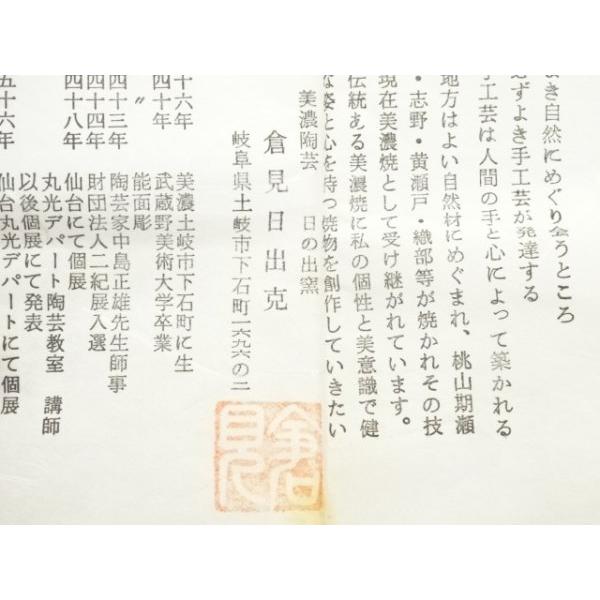 よき自然にめぐり会うところ
必ずよき手工芸が発達する
手工芸は人間の手と心によって築かれる
地方はよい自然材にめぐまれ、桃山期瀬
・志野・黄瀬戸・織部等が焼かれその技
現在美濃焼として受け継がれています。
伝統ある美濃焼に私の個性と美意識で健
な姿と心を持つ焼物を創作していきたい
美濃陶芸 日の出窯
倉見日出克
岐阜県土岐市下石町一六九六の二
十六年 美濃土岐市下石町に生
四十年 武蔵野美術大学卒業
〃 能面彫
四十三年 陶芸家中島正雄先生師事
四十四年 財団法人二紀展入選
四十八年 仙台にて個展
丸光デパート陶芸教室 講師
以後個展にて発表
五十六年 仙台丸光デパートにて個展
倉見